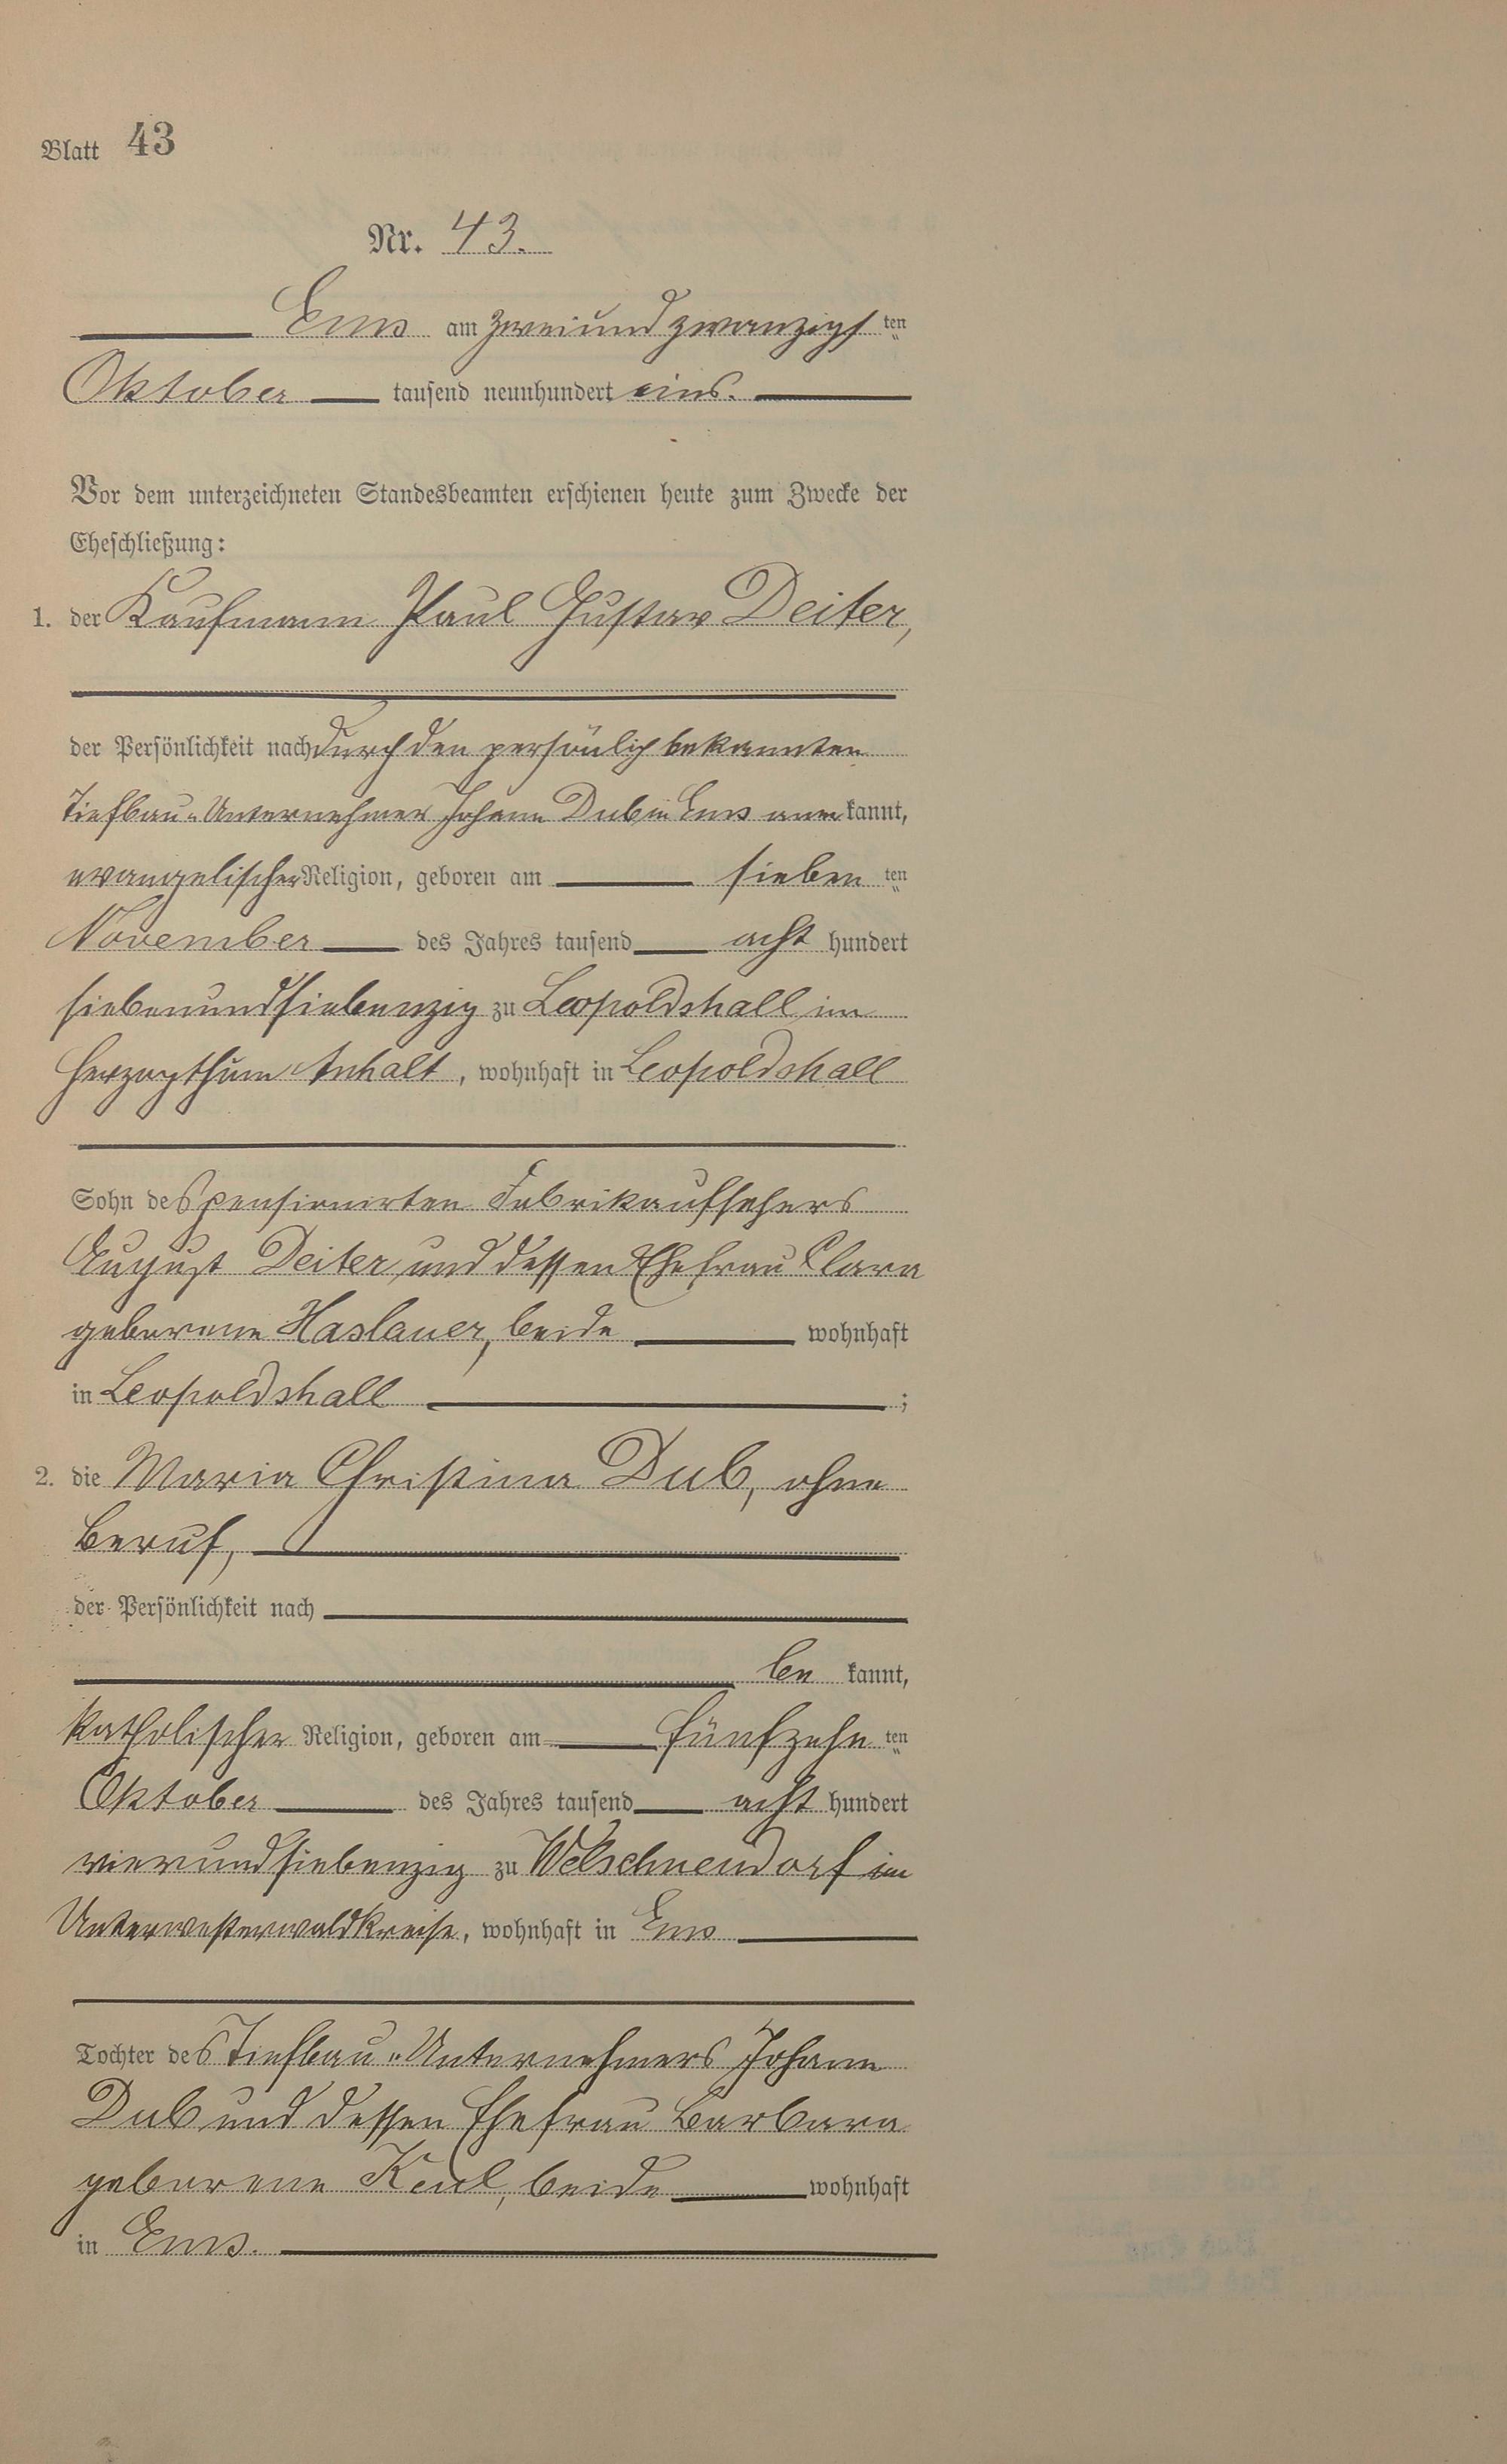 Blatt 43
Nr. 43.
Ems am zweiundzwanzigsten
Oktober tausend neunhundert eins.
Vor dem unterzeichneten Standesbeamten erschienen heute zum Zwecke der
Eheschließung:
1. der Kaufmann Paul Gustav Deiter,
der Persönlichkeit nach durch den persönlich bekannten
Tiefbau-Unternehmer Johann Dub in Ems anerkannt,
evangelischer Religion, geboren am siebenten
November des Jahres tausend acht hundert
siebenundsiebenzig zu Leopoldshall im
Herzogthum Anhalt, wohnhaft in Leopoldshall
Sohn des pensionirten Fabrikaufsehers
August Deiter und dessen Ehefrau Clara
geborene Haslauer, beide wohnhaft
in Leopoldshall ;
2. die Maria Christina Dub, ohne
Beruf,
der Persönlichkeit nach
be kannt,
katholischer Religion, geboren am fünfzehnten
Oktober des Jahres tausend acht hundert
vierundsiebenzig zu Welschneudorf im
Unterwesterwaldkreise, wohnhaft in Ems
Tochter des Tiefbau-Unternehmers Johann
Dub und dessen Ehefrau Barbara
geborene Keul, beide wohnhaft
in Ems.